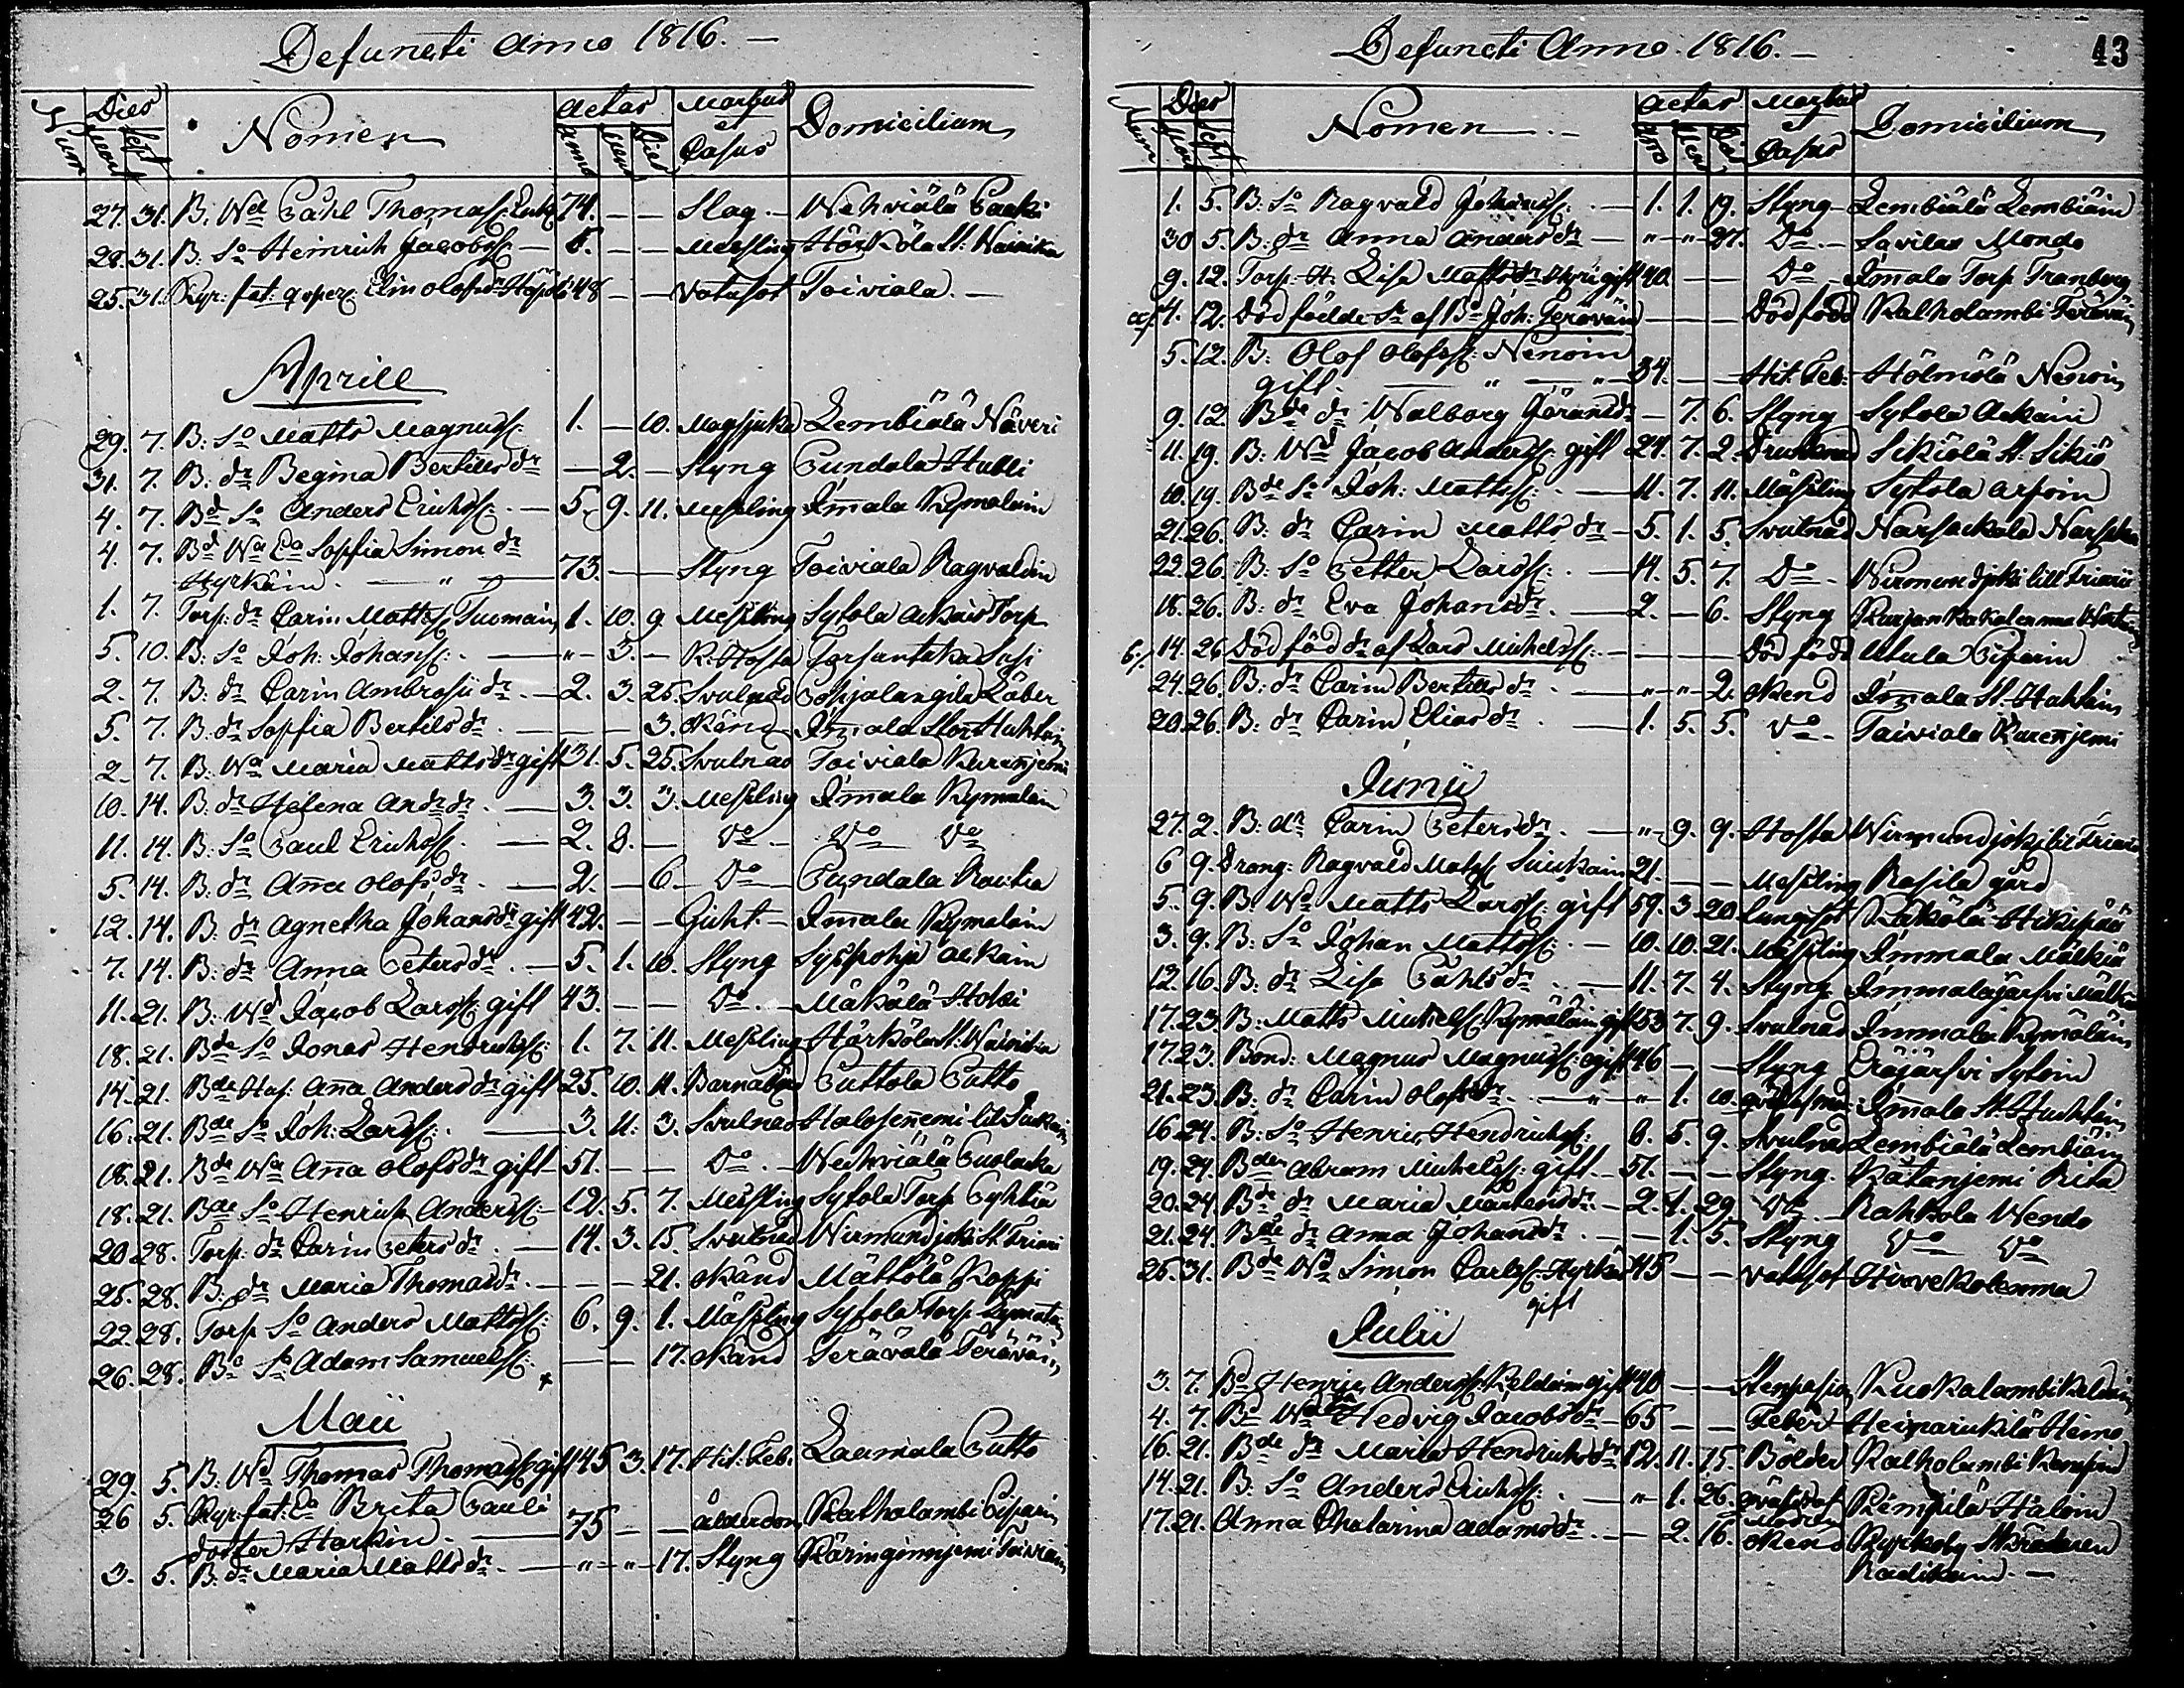 Defuncti Anno 1816. —
Num Dies Mort Sept Nomen Aetas Anno Mens Dies Morbus et Casus Domicilium
27. 31. B. Wd Påhl Thomass: Enkl. 74. — — Slag. — Wehviälä Paaki
28. 31. B. So Heinrich Jacobss: — 6. — — Messling Härkölä St. Wainika
25. 31. Kyr: fat: Elin Olofsdr 48 — — Votusot Toiviala. —
Aprill
29. 7. B: So Matts Magnuss: 1. — 10. Magsjuka Lembiälä Näveri
31. 7. B: dr Regina Bertillsdr — 2. — Styng Pundala Hubli
4. 7. Bd So Anders Erichss: — 5. 9. 11. Messling Immala Rymalain
4. 7. Bd Wa Ea Sopfia Simon dr
Hyrkäin. — " — 73. — — Styng Toiviala Ragvaldin
1. 7. Torp: dr Carin Mattss: Tuomain 1. 10. 9 Messling Sytola Ackais Torp
5. 10. B: So Joh: Johanss: — "– 3. — K. Hosta Torsantaka Susi
2. 7. B: dr Carin Ambrosii dr. — 2. 3. 25. Svulnad Pohjalangila Läber
5. 7. B: dr Sopfia Bertils dr. — — — 3. okänd Immala Stor Huhtain
2. 7. B. Wa Maria Mattsdr gift 31. 5. 25. Svulnad Toiviala Kurenjemi
10. 14. B. dr Helena Andrdr. — 3. 3. 3. Messling Immala Rymalain
11. 14. B: So Paul Erichss. — 2. 8. — Do Do Do
5. 14. B. dr Anna Olofsdr. — 2. — 6 Do Pundala Rautia
12. 14. B. dr Agnetha Johansdr gift 42. — — Gicht. Immala Rymalain
7. 14. B: dr Anna Petersdr. — 5. 1. 10. Styng Syspohja Ackain
11. 21. B. Wd Jacob Larss: gift 43. — — Do. — Mäkälä Hovi
18. 21. Bde So Jonas Hendrichss: 1. 7. 11. Messling Härkölä St. Wainikka
14. 21. Bde Hus: Anna Anders dr gift 25. 10. 11. Barnabörd Puttola Putto
16. 21. Bde So Joh: Larss: — 3. 11. 3. Svulnad Halosenniemi lill Suikain
18. 21. Bde Wa Anna Olofsdr gift 51. — — Do. — Wehviälä Puolacka
18. 21. Bde So Henrich Anderss: 12. 5. 7. Messling Sytola Torp Pyhtiä
20. 28. Torp: dr Carin Peters dr. — 14. 3. 15. Svulnad Wirmundjoki St. Friari
25. 28. B: dr Maria Thomasdr. — — — 21. okänd Mättölä Koppi
22. 28. Torp So Anders Mattss: 6. 9. 1. Mässling Sytola Torp
26. 28. Bo So Adam Samuelss: — — 17. okänd Terävälä Teräväin
Maii
29. 5. B. Wd Thomas Thomass: gift 45 3. 17. Hit: Feb. Laamala Putto
26 5. Kyr: fat: Ea Brita Pauli
dotter Harkin. — 75 — — ålderdom Ratholambi Piparin
3. 5. B. dr Maria Mattsdr. — "–"– 17. Styng Käringinnjemi Toiviain
Defuncti Anno. 1816. — 43
Num Dies Mort Sept Nomen Aetas Anno Mens Dies Morbus et Casus Domicilium
1. 5. B. So Ragvald Johanss: — 1. 1. 19. Styng Lembiälä Lembiäin
30 5. B: dr Anna Anders dr — "–"– 27. Do. — Savilax Mondo
9. 12. Torp. H. Lisa Mattsdr gift 40. — — Do Immala Torp Tranberg
a/ 4. 12. Död födde Sn af Bo Joh: Teräväin — — — Död född Ratholambi Teräväin
5. 12. B: Olof Olofss: Nenoin
gift. — " — " — 34. — — Hit. Feb: Hölmölä Nenoin
9. 12. Bde dr Walborg Göransdr — 7. 6. Styng Sytola Ackain
11. 19. B. Wd Jacob Anderss: gift 24. 7. 2. Drucknad Sikiölä St. Sikiö
10. 19. Bde So Joh: Mattss: — 11. 7. 11. Mässling Sytola Arpoin
21. 26. B: dr Carin Matts dr — 5. 1. 5. Svulnad Narsackala Narsaka
22. 26. B: So Petter Larss: — 14. 5. 7. Do — Wirmundjoki lill Friari
18. 26. B: dr Eva Johansdr. — 2. — 6. Styng
b/ 14. 26 Död född dr af Lars Michelss: — — — Död född Utula Piparin
24. 26. B: dr Carin Bertills dr. — "–"– 2. okend Immala St. Huhtain
20. 26. B: dr Carin Elias dr — 1. 5. 5. Do. Toiviala Kurenjemi
Junii
27. 2. B: dr Carin Petersdr. — "– 9. 9. Hosta Wirmundjoki lill Friari
6 9. Dräng: Ragvald Matss: Suickain 21. — — Messling Rasila gård
5. 9. B. Wd Matts Larss: gift 59. 3 20 Lungsot Kakölä Hikipää
3. 9. B: So Johan Mattss: — 10. 10. 21. Messling Immala Mälkiä
12. 16. B: dr Lisa Påhlsdr. — 11. 7. 4. Styng Immalajärfvi Mälkiä
17. 23. B: Matts Michelss: Rymäläin gift 53 7. 9. Svulnad Immala Rymäläin
17. 23. Bond: Magnus Magnuss: ogift 46 — — Styng Eräjärfvi Sytoin
21. 23. B: dr Carin Olofsdr. — " — " 1. 10. Immala St. Huhtain
16. 24. B: So Henric Hendrichss: 8. 5. 9. Svulnad Lembiälä Lembiäin
19. 24. Bden Abram Michelss: gift 51. — — Styng. Rätänjemi Rita
20. 24. Bde dr Maria Mårtensdr. — 2. 1. 29 Do. — Rahkola Wendo
21. 24. Bde dr Anna Johansdr. — — 1. 5. Styng Do Do
25. 31. Bde Wd Simon Carlss: Hyrkäin 45 — — Vattusot
gift
Julii
3. 7. Bd Henric Anderss: Keldain gift 40 — — Stenpasion Ruokalambi Keldain
4. 7. Bo Wa Hedvig Jacobsdr — 65 — — Feber Heinarickilä Heino
16. 21. Bde dr Maria Hendrichsdr 12. 11. 15. Bölder Ratholambi
14. 21. B: So Anders Erichss: — " 1. 26. Rempilä Häloin
17. 21. Anna Chatarina Adamsdr. — 2. 16. okend Kyrkoby
Kadikain. —